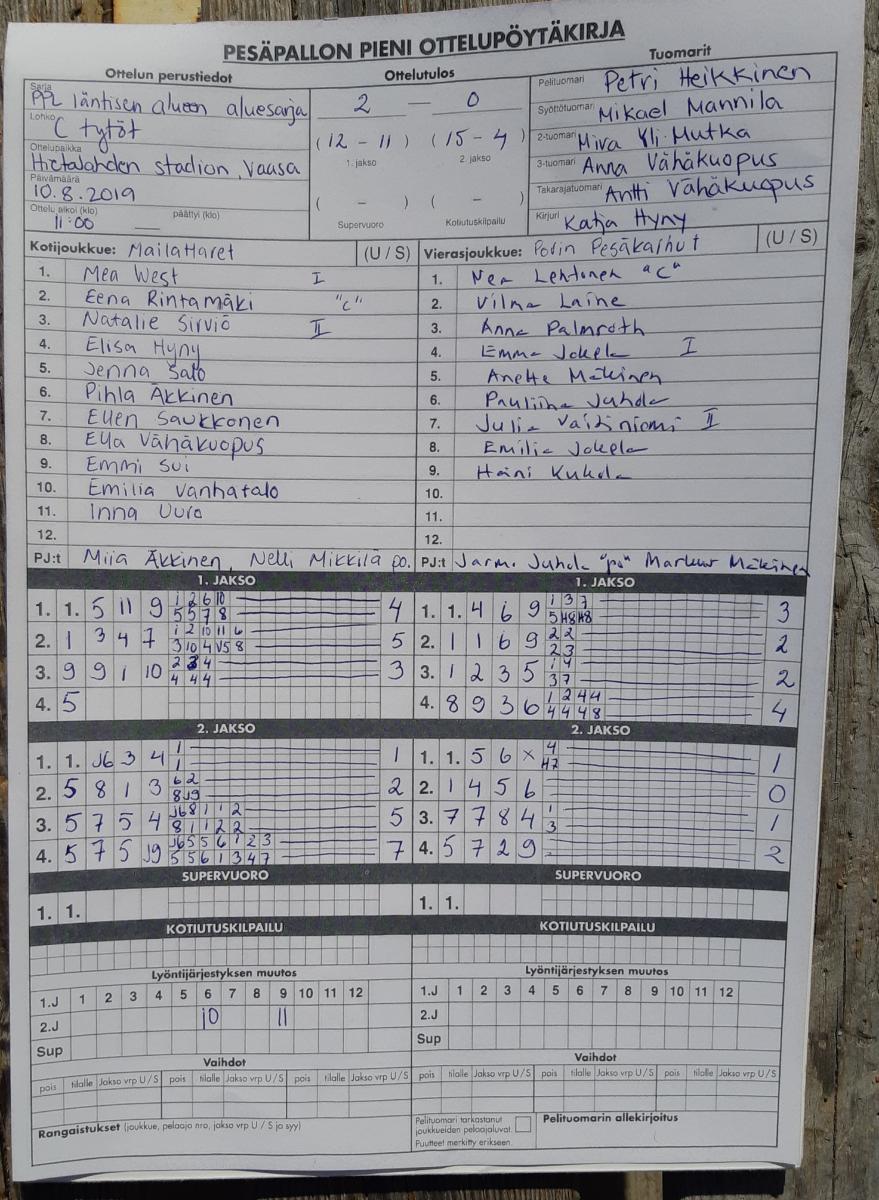 PESÄPALLON PIENI OTTELUPÖYTÄKIRJA
Ottelun perustiedot
Ottelutulos
Tuomarit
Sarja
PPL läntisen alueen aluesarja
Lohko
C tytöt
Ottelupaikka
Hietalahden stadion, Vaasa
Päivämäärä
10.8.2019
Ottelu alkoi (klo) päättyi (klo)
11:00
2 — 0
(12 - 11) (15 - 4)
1. jakso 2. jakso
( - ) ( - )
Supervuoro Kotiutuskilpailu
Pelituomari Petri Heikkinen
Syöttötuomari Mikael Mannila
2-tuomari Miva Yli-Mutka
3-tuomari Anna Vähäkuopus
Takarajatuomari Antti Vähäkuopus
Kirjuri Katja Hyny
Kotijoukkue: MailaHaret (U / S)
1. Mea West I
2. Eena Rintamäki "c"
3. Natalie Sirviö II
4. Elisa Hyny
5. Jenna Salo
6. Pihla Äkkinen
7. Ellen Saukkonen
8. Ella Vähäkuopus
9. Emmi Sui
10. Emilia Vanhatalo
11. Inna Uuro
12.
PJ:t Miia Äkkinen, Nelli Mikkilä po.
Vierasjoukkue: Porin Pesäkarhut (U / S)
1. Nea Lehtonen "C"
2. Vilma Laine
3. Anna Palmroth
4. Emma Jokela I
5. Anette Mäkinen
6. Pauliina Juhola
7. Julia Vaitiniemi II
8. Emilia Jokela
9. Heini Kuhda
10.
11.
12.
PJ:t Jarmo Juhola "po" Markus Mäkinen
1. JAKSO
1. 1. 5 11 9 1 2 6 10 4
5 5 7 8
2. 1 3 4 7 1 2 10 11 6 5
3 10 4 V5 8
3. 9 9 1 10 2 3 4 3
4 4 4
4. 5
1. JAKSO
1. 1. 4 6 9 1 3 7 3
5 H8 H8
2. 1 1 6 9 2 2 2
2 3
3. 1 2 3 5 1 4 2
3 7
4. 8 9 3 6 1 2 4 4 4
4 4 4 8
2. JAKSO
1. 1. J6 3 4 1 1
1
2. 5 8 1 3 6 2 2
8 J9
3. 5 7 5 4 J6 8 1 1 2 5
8 1 1 2 2
4. 5 7 5 J9 J6 5 5 6 1 2 3 7
5 5 6 1 3 4 7
2. JAKSO
1. 1. 5 6 x 4 1
H7
2. 1 4 5 6 0
3. 7 7 8 4 1 1
3
4. 5 7 2 9 2
SUPERVUORO
1. 1.
SUPERVUORO
1. 1.
KOTIUTUSKILPAILU
KOTIUTUSKILPAILU
Lyöntijärjestyksen muutos
1.J 1 2 3 4 5 6 7 8 9 10 11 12
2.J 10 11
Sup
Lyöntijärjestyksen muutos
1.J 1 2 3 4 5 6 7 8 9 10 11 12
2.J
Sup
Vaihdot
pois tilalle Jakso vrp U / S pois tilalle Jakso vrp U / S pois tilalle Jakso vrp U / S
Vaihdot
pois tilalle Jakso vrp U / S pois tilalle Jakso vrp U / S pois tilalle Jakso vrp U / S
Rangaistukset (joukkue, pelaaja nro, jakso vrp U / S ja syy)
Pelituomari tarkastanut
joukkueiden pelaajaluvat.
Puutteet merkitty erikseen.
Pelituomarin allekirjoitus